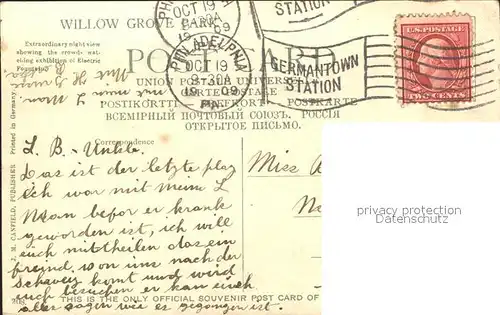 WILLOW GROVE PARK
Extraordinary night view
showing the crowds watching
exhibition of Electric
Fountain
OCT 19
STATION
PHILADELPHIA
OCT 19
9-30A
1909
PA.
GERMANTOWN
STATION
U.S. POSTAGE
TWO CENTS
POST CARD
UNION POSTALE UNIVERSELLE
CARTE POSTALE
POSTIKORTTI POSTKARTE
ВСЕМІРНЫЙ ПОЧТОВЫЙ СОЮЗЪ. РОССІЯ
ОТКРЫТОЕ ПИСЬМО.
Printed in Germany.
J. M. CANFIELD, PUBLISHER
Correspondence
L. B. Unkle.
Das ist der letzte plaz
ich war mit meine L
Man befor er krank
geworden ist, ich will
euch mittheilen das ein
freund von uns nach der
schweiz komt und wird
euch besuchen er kan euch
alles sagen wie es gegangen ist.
Miss
THIS IS THE ONLY OFFICIAL SOUVENIR POST CARD OF
privacy protection
Datenschutz